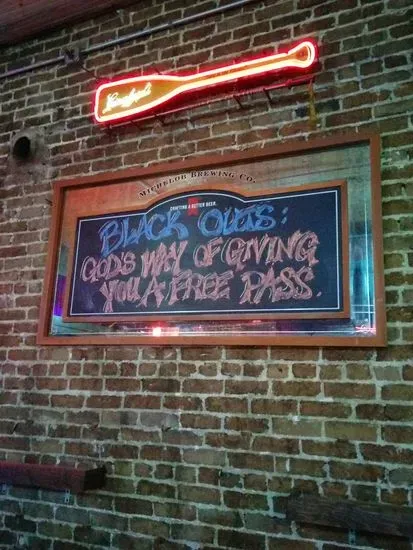 Leinenkugel's
MICHELOB BREWING CO.
CRAFTING A BETTER BEER.
BLACK OUTS:
GOD'S WAY OF GIVING
YOU A FREE PASS.